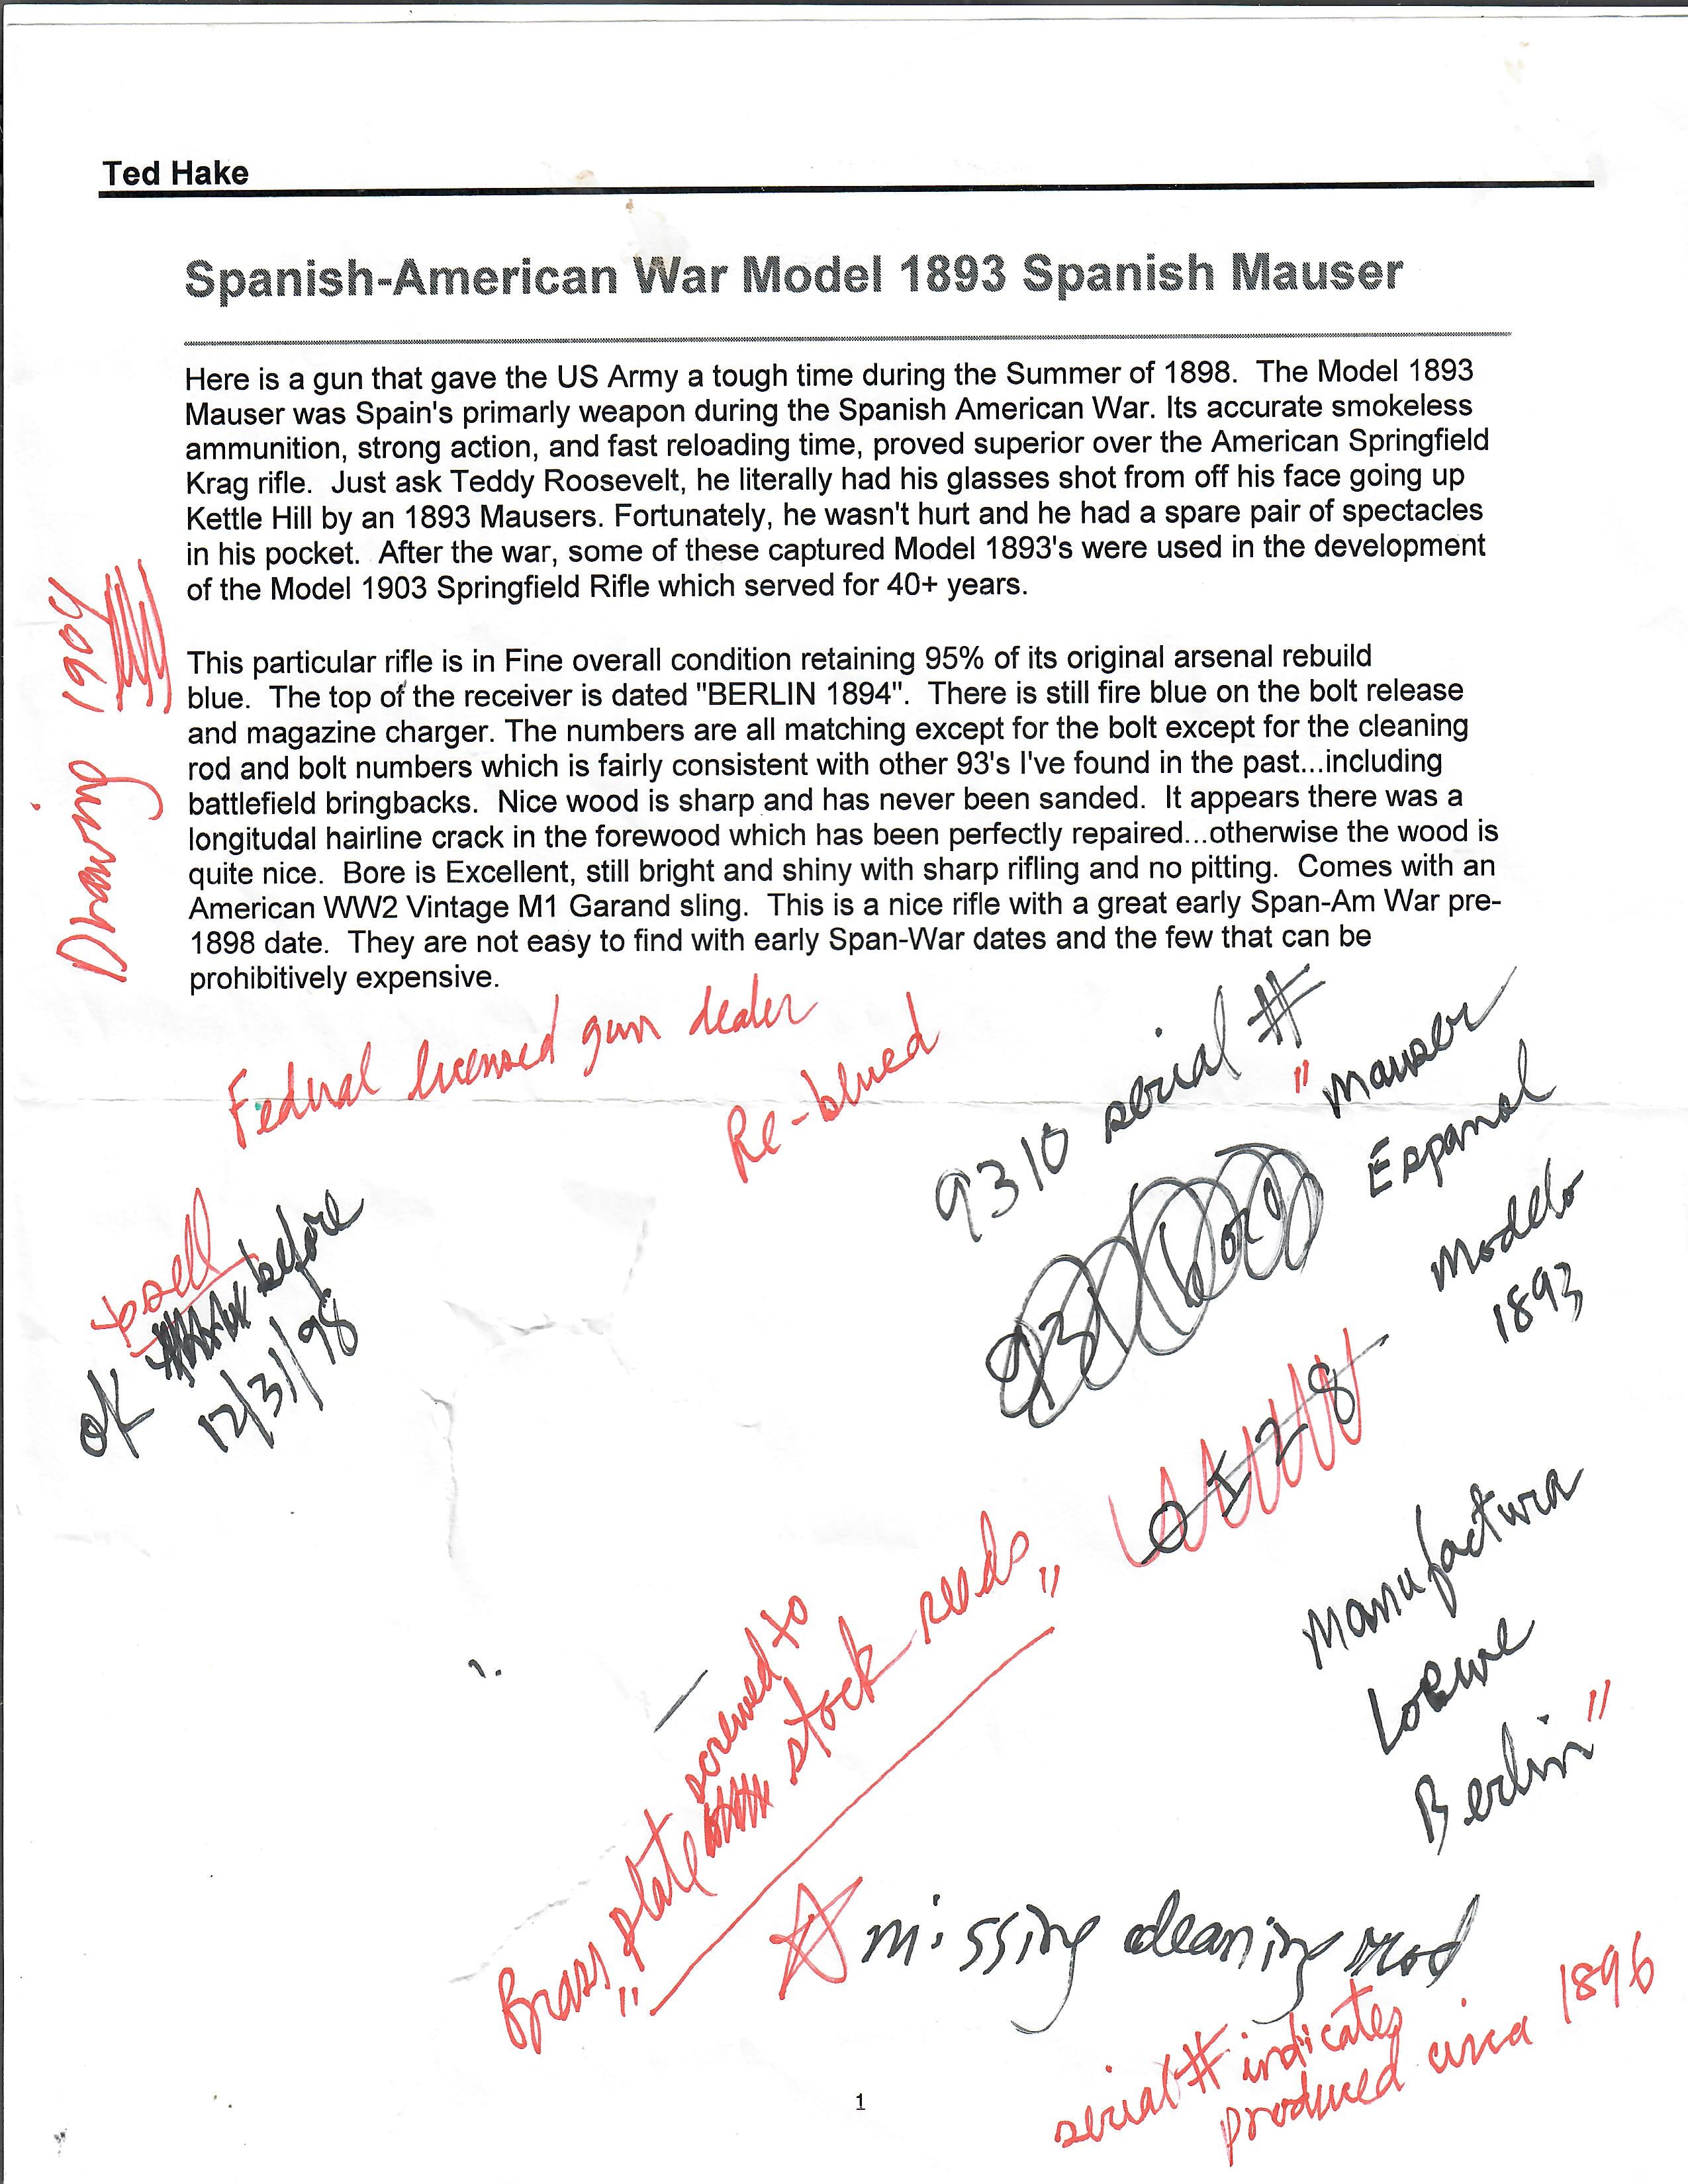 Ted Hake
Spanish-American War Model 1893 Spanish Mauser
Here is a gun that gave the US Army a tough time during the Summer of 1898.  The Model 1893
Mauser was Spain's primarly weapon during the Spanish American War. Its accurate smokeless
ammunition, strong action, and fast reloading time, proved superior over the American Springfield
Krag rifle.  Just ask Teddy Roosevelt, he literally had his glasses shot from off his face going up
Kettle Hill by an 1893 Mausers. Fortunately, he wasn't hurt and he had a spare pair of spectacles
in his pocket.  After the war, some of these captured Model 1893's were used in the development
of the Model 1903 Springfield Rifle which served for 40+ years.
This particular rifle is in Fine overall condition retaining 95% of its original arsenal rebuild
blue.  The top of the receiver is dated "BERLIN 1894".  There is still fire blue on the bolt release
and magazine charger. The numbers are all matching except for the bolt except for the cleaning
rod and bolt numbers which is fairly consistent with other 93's I've found in the past...including
battlefield bringbacks.  Nice wood is sharp and has never been sanded.  It appears there was a
longitudal hairline crack in the forewood which has been perfectly repaired...otherwise the wood is
quite nice.  Bore is Excellent, still bright and shiny with sharp rifling and no pitting.  Comes with an
American WW2 Vintage M1 Garand sling.  This is a nice rifle with a great early Span-Am War pre-
1898 date.  They are not easy to find with early Span-War dates and the few that can be
prohibitively expensive.
Drawing 1904
Federal licensed gun dealer
Re-blued
9310 serial #
"Mauser
Espanol
Modelo
1893
to sell
OK before
12/31/98
Manufactura
Loewe
Berlin"
Brass plate screwed to
stock reads
missing cleaning rod
serial # indicates
produced circa 1896
1